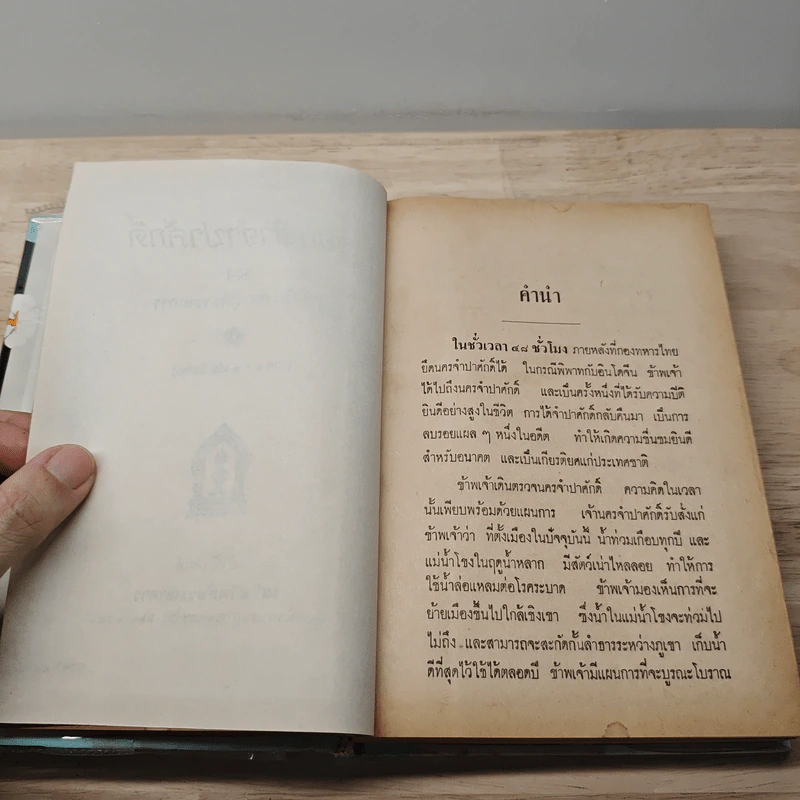 คำนำ
ในชั่วเวลา ๔๘ ชั่วโมง ภายหลังที่กองทหารไทย
ยึดนครจำปาศักดิ์ได้ ในกรณีพิพาทกับอินโดจีน ข้าพเจ้า
ได้ไปถึงนครจำปาศักดิ์ และเป็นครั้งหนึ่งที่ได้รับความปีติ
ยินดีอย่างสูงในชีวิต การได้จำปาศักดิ์กลับคืนมา เป็นการ
ลบรอยแผล ๆ หนึ่งในอดีต ทำให้เกิดความชื่นชมยินดี
สำหรับอนาคต และเป็นเกียรติยศแก่ประเทศชาติ
ข้าพเจ้าเดินตรวจนครจำปาศักดิ์ ความคิดในเวลา
นั้นเพียบพร้อมด้วยแผนการ เจ้านครจำปาศักดิ์รับสั่งแก่
ข้าพเจ้าว่า ที่ตั้งเมืองในปัจจุบันนี้ น้ำท่วมเกือบทุกปี และ
แม่น้ำโขงในฤดูน้ำหลาก มีสัตว์เน่าไหลลอย ทำให้การ
ใช้น้ำล่อแหลมต่อโรคระบาด ข้าพเจ้ามองเห็นการที่จะ
ย้ายเมืองขึ้นไปใกล้เชิงเขา ซึ่งน้ำในแม่น้ำโขงจะท่วมไป
ไม่ถึง และสามารถจะสะกัดกั้นลำธารระหว่างภูเขา เก็บน้ำ
ดีที่สุดไว้ใช้ได้ตลอดปี ข้าพเจ้ามีแผนการที่จะบูรณะโบราณ